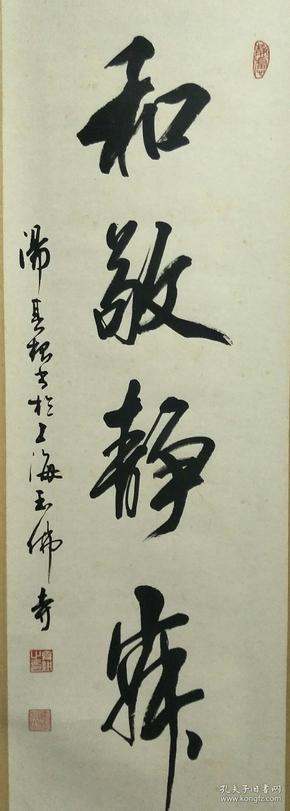 和敬静寂
湯其根书於上海玉佛寺
孔夫子旧书网
www.kongfz.com